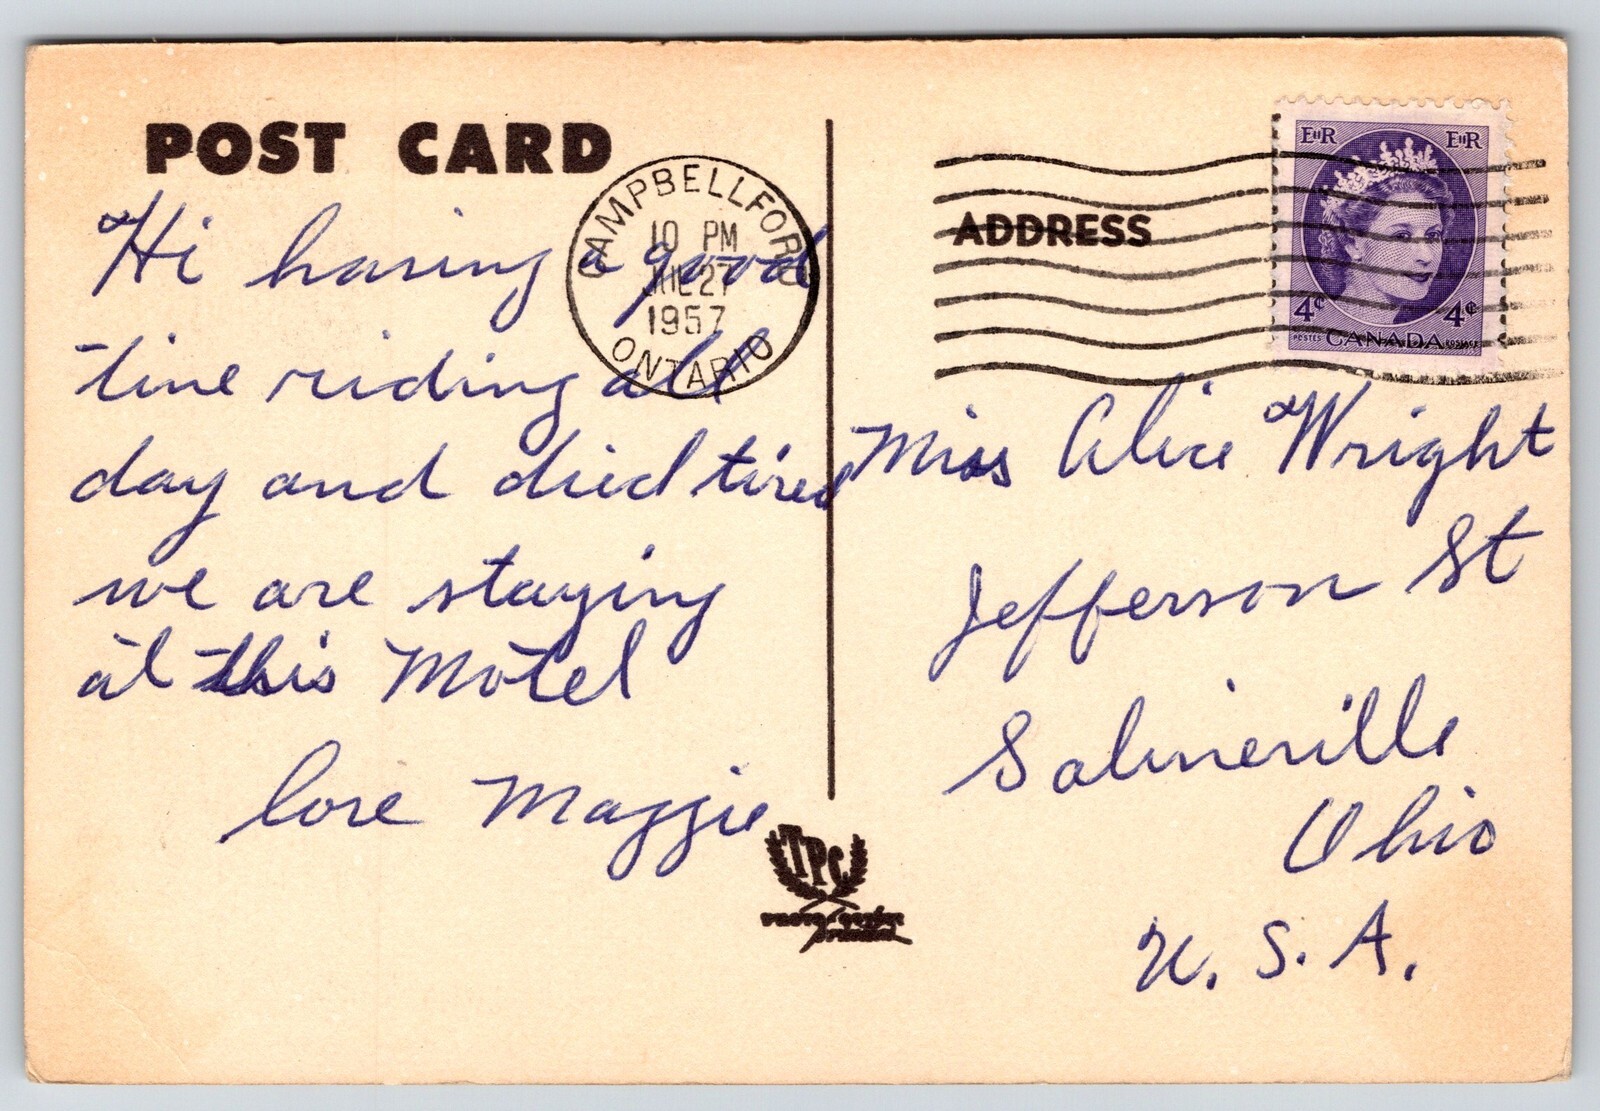 POST CARD
Hi having a good
time riding all
day and died tired
we are staying
at this Motel
love Maggie
CAMPBELLFORD
10 PM
JUL 27
1957
ONTARIO
ADDRESS
EIIR EIIR
4¢ 4¢
POSTES CANADA POSTAGE
Miss Alice Wright
Jefferson St
Salineville
Ohio
U.S.A.
TPC